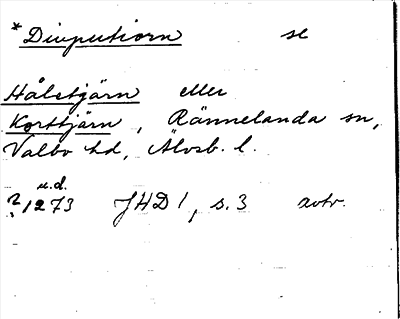 *Diuputiorn se
Hålstjärn eller
Korttjärn, Rännelanda sn,
Valbo hd, Älvsb. l.
u.d.
?1273 JHD 1, s. 3 avtr.